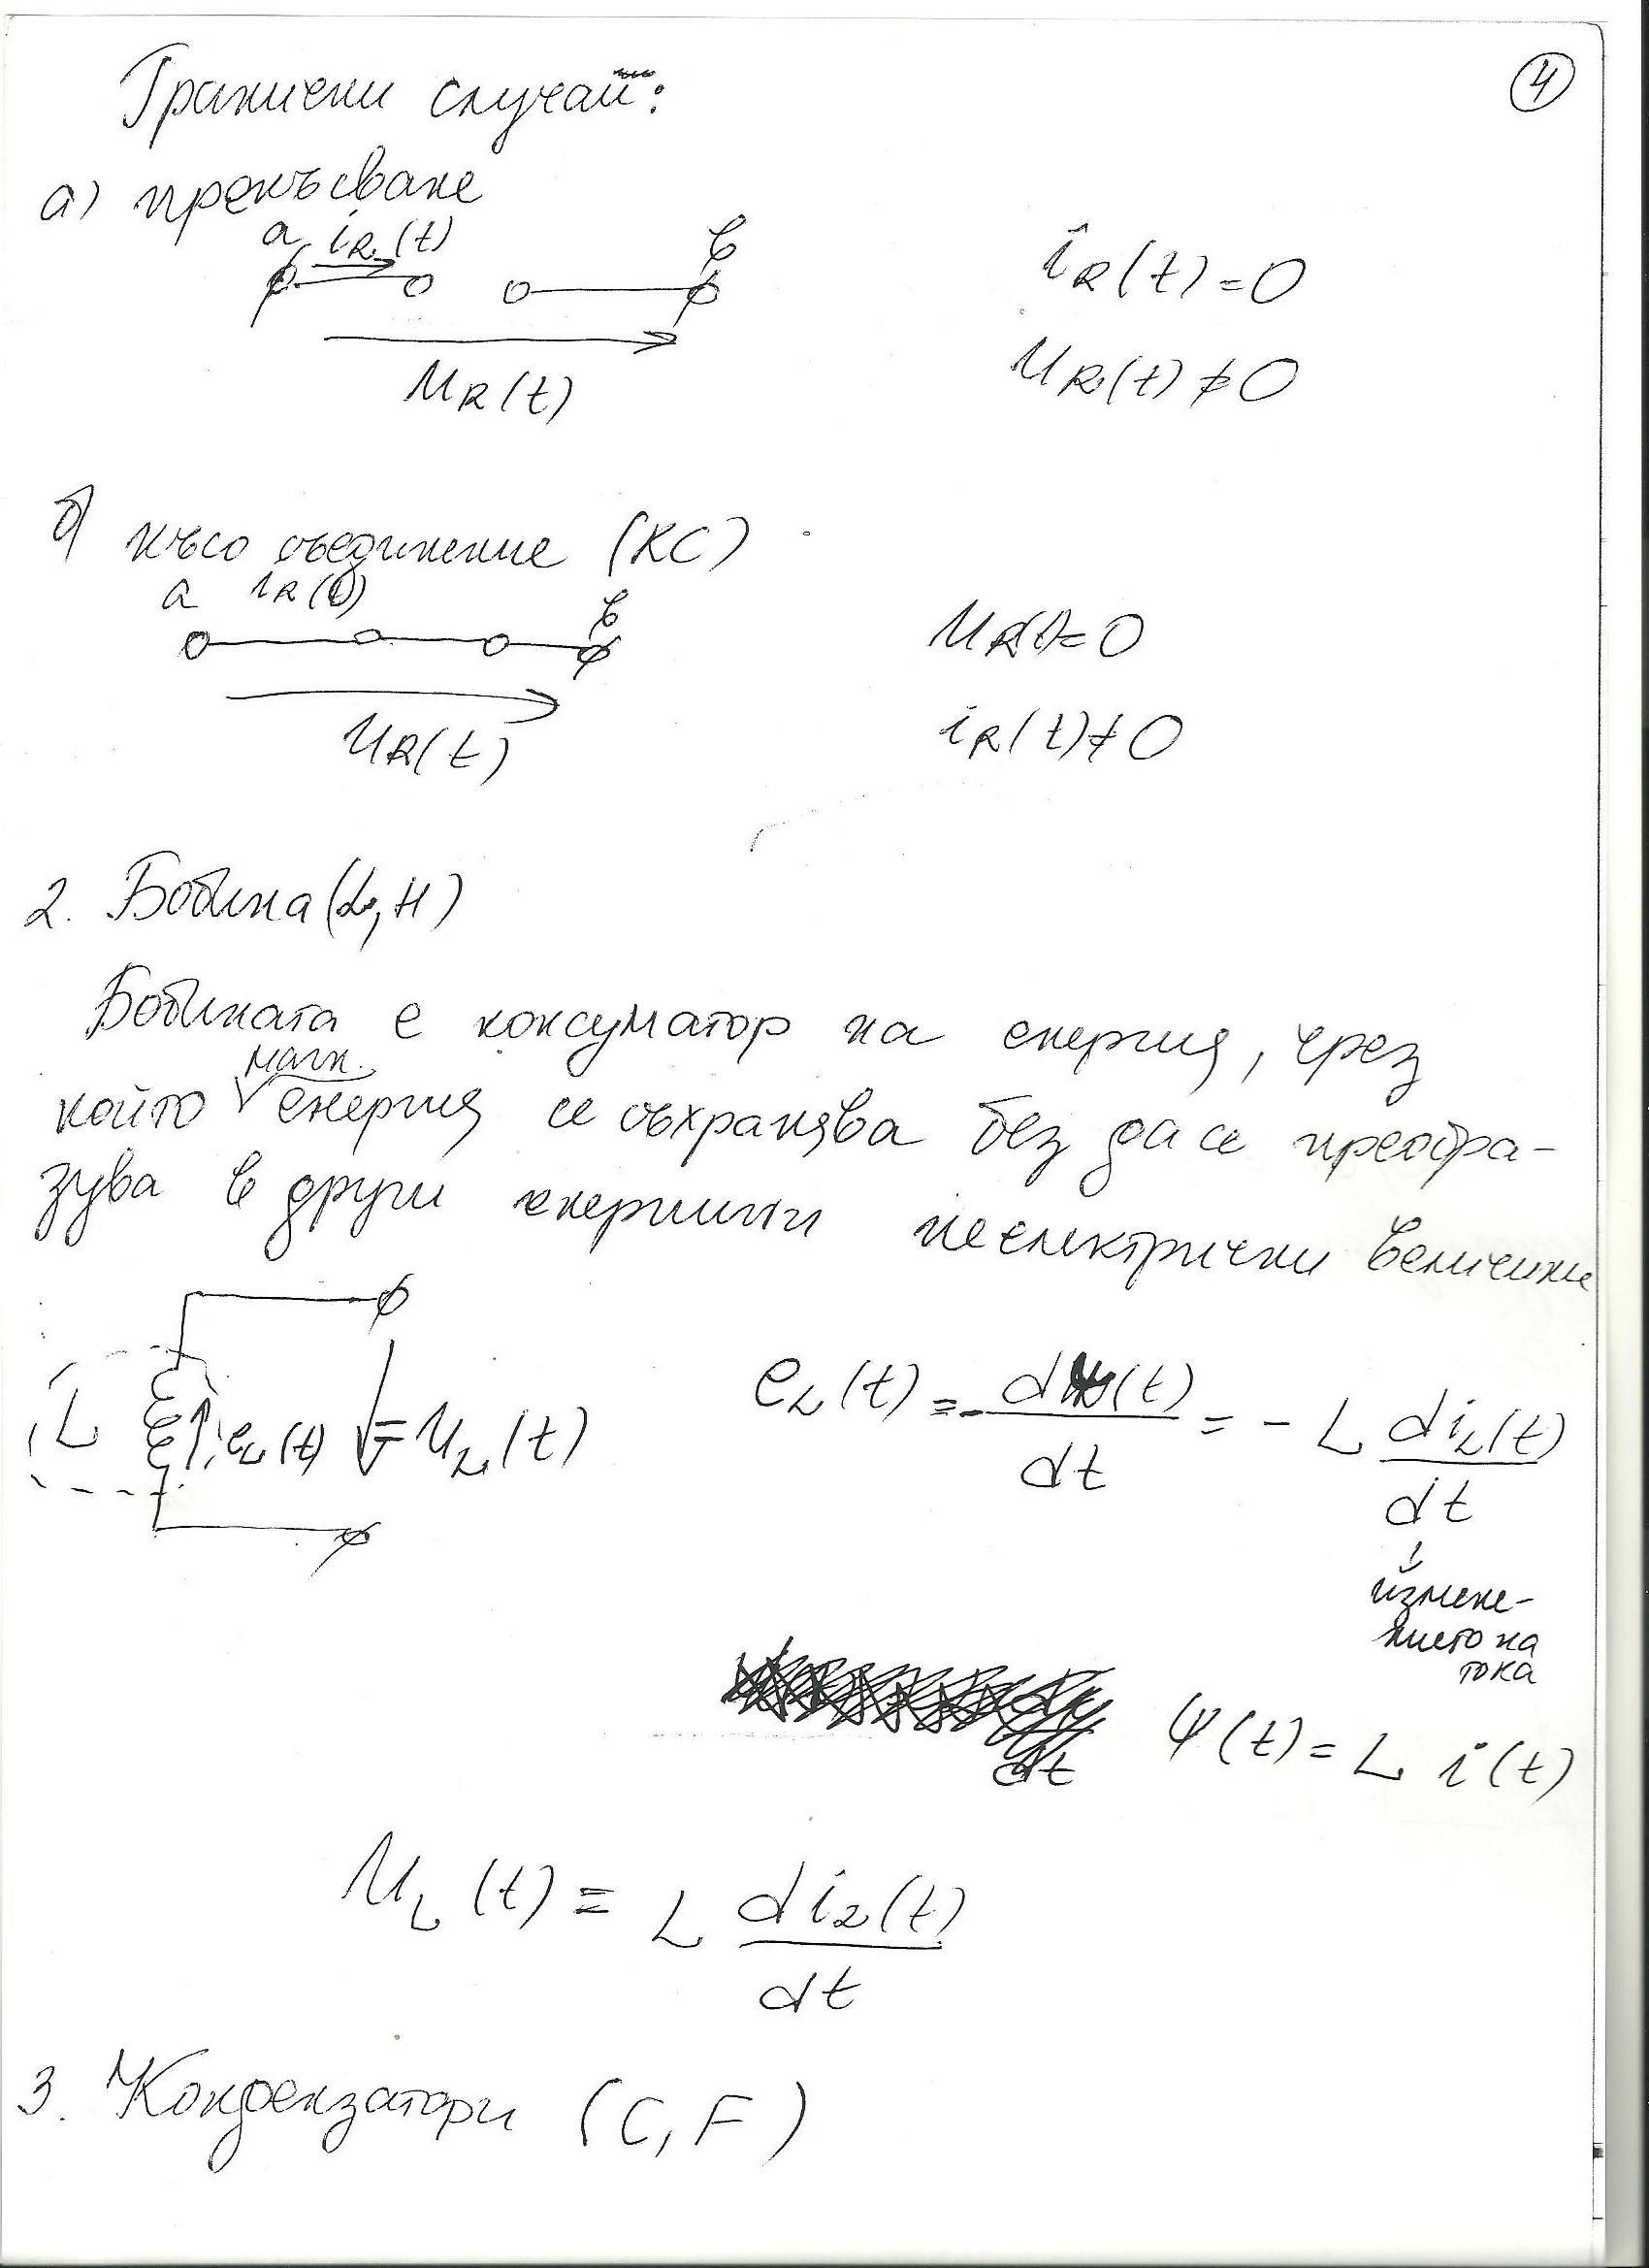 Гранични случаи:
4
а) прекъсване
a iR(t) b
uR(t)
iR(t)=0
uR(t)≠0
б) късо съединение (КС)
a iR(t) b
uR(t)
uR(t)=0
iR(t)≠0
2. Бобина (L, H)
Бобината е консуматор на енергия, чрез
магн.
който енергия се съхранява без да се преобра-
зува в други енергийни неелектрически величини
L eL(t) uL(t)
eL(t) = - dψ(t)/dt = - L diL(t)/dt
измене-
нието на
тока
ψ(t) = L i(t)
uL(t) = L diL(t)/dt
3. Кондензатори (C, F)